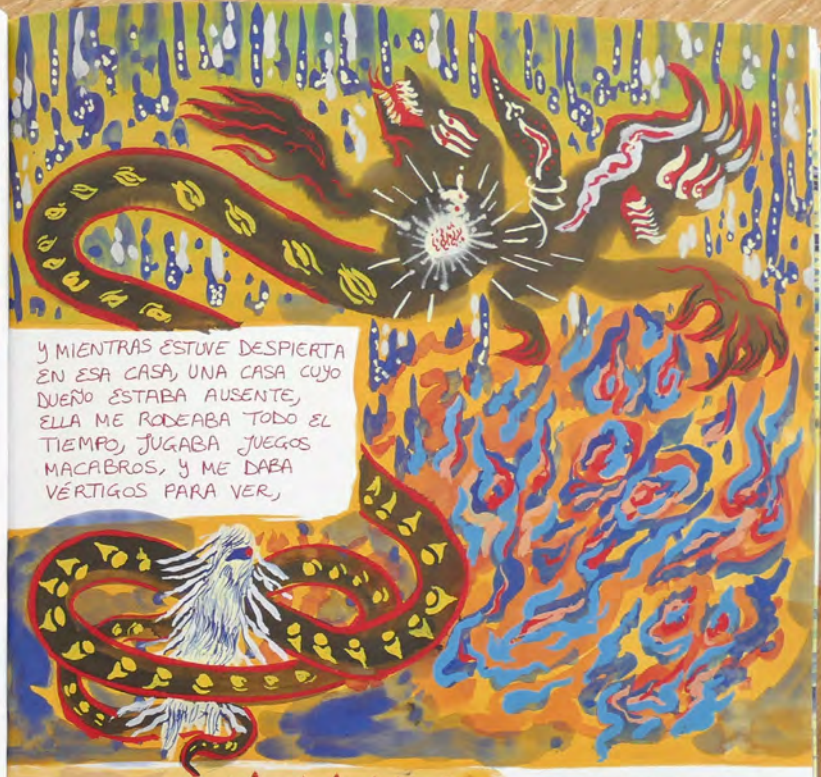 Y MIENTRAS ESTUVE DESPIERTA
EN ESA CASA, UNA CASA CUYO
DUEÑO ESTABA AUSENTE,
ELLA ME RODEABA TODO EL
TIEMPO, JUGABA JUEGOS
MACABROS, Y ME DABA
VÉRTIGOS PARA VER,